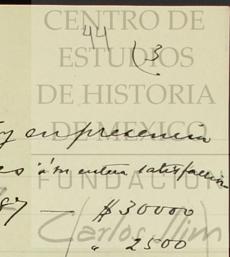 CENTRO DE
ESTUDIOS
DE HISTORIA
DE MEXICO
FUNDACIÓN
Carlos Slim
44 (3
y en presencia
es á mi entera satisfaccion
87 — $ 30000
" 2500